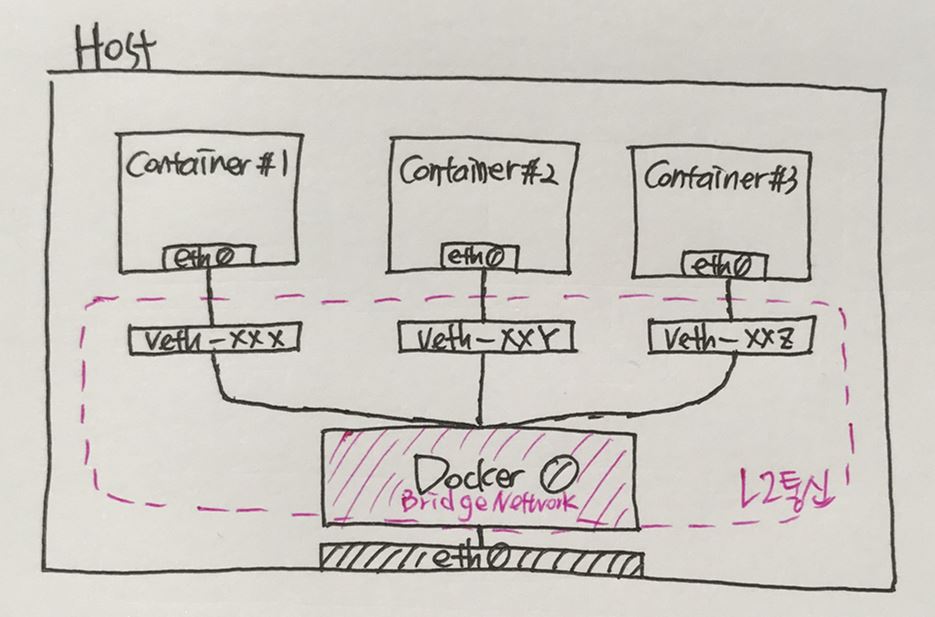 Host
Container#1
Container#2
Container#3
eth0
eth0
eth0
Veth-XXX
Veth-XXY
Veth-XXZ
Docker 0
Bridge Network
L2통신
eth0